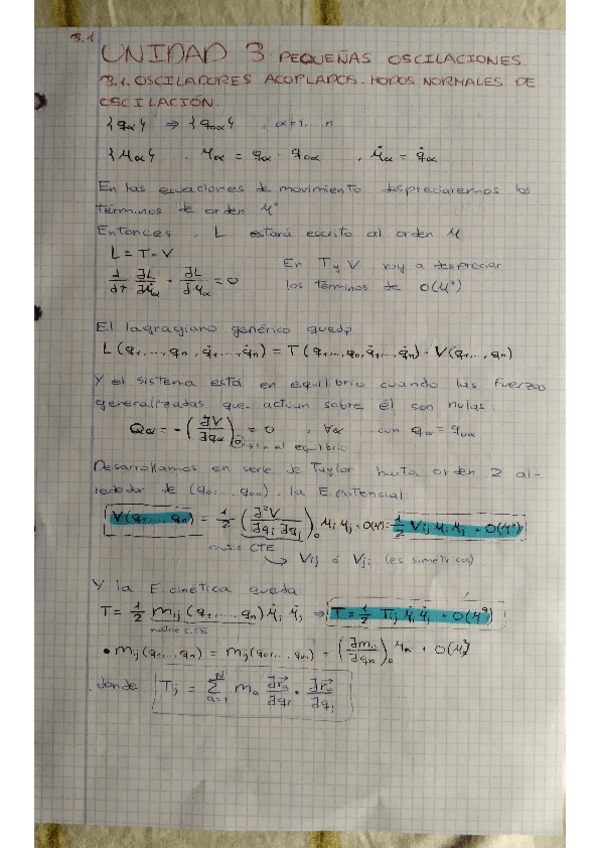 3.1
UNIDAD 3 PEQUEÑAS OSCILACIONES.
3.1. OSCILADORES ACOPLADOS. MODOS NORMALES DE
OSCILACIÓN.
{qα} ⇒ {q0α} , α=1, .. n
{μα} . μα = qα - q0α , μ̇α = q̇α
En las ecuaciones de movimiento despreciaremos los
términos de orden μ²
Entonces, L estará escrito al orden μ
L = T - V
d/dt ∂L/∂μ̇α - ∂L/∂μα = 0
En T y V voy a despreciar
los términos de O(μ³)
El lagragiano genérico queda
L(q1, ..., qn, q̇1, ..., q̇n) = T(q1, ..., qn, q̇1, ..., q̇n) - V(q1, ..., qn)
Y el sistema está en equilibrio cuando las fuerzas
generalizadas que actúan sobre él son nulas:
Qα = -(∂V/∂qα)0 = 0 , ∀α con qα = q0α
en el equilibrio
Desarrollamos en serie de Taylor hasta orden 2 al-
rededor de (q01 ... q0n), la E. potencial:
V(q1, ... qn) = 1/2 (∂²V/∂qi ∂qj)0 μi μj + O(μ³) = 1/2 Vij μi μj + O(μ³)
matriz CTE
↳ Vij ó Vji (es simétrica)
Y la E. cinética queda:
T = 1/2 mij (q1, ... qn) μ̇i μ̇j ⇒ T = 1/2 Tij μ̇i μ̇j + O(μ³)
matriz CTE
• mij(q1, ..., qn) = mij(q01, ..., q0n) + (∂mij/∂qα)0 μα + O(μ²)
donde Tij = Σ a=1 N ma ∂r⃗a/∂qi · ∂r⃗a/∂qj